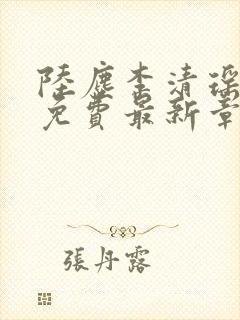 陸塵李清瑤
免費最新章
張丹露